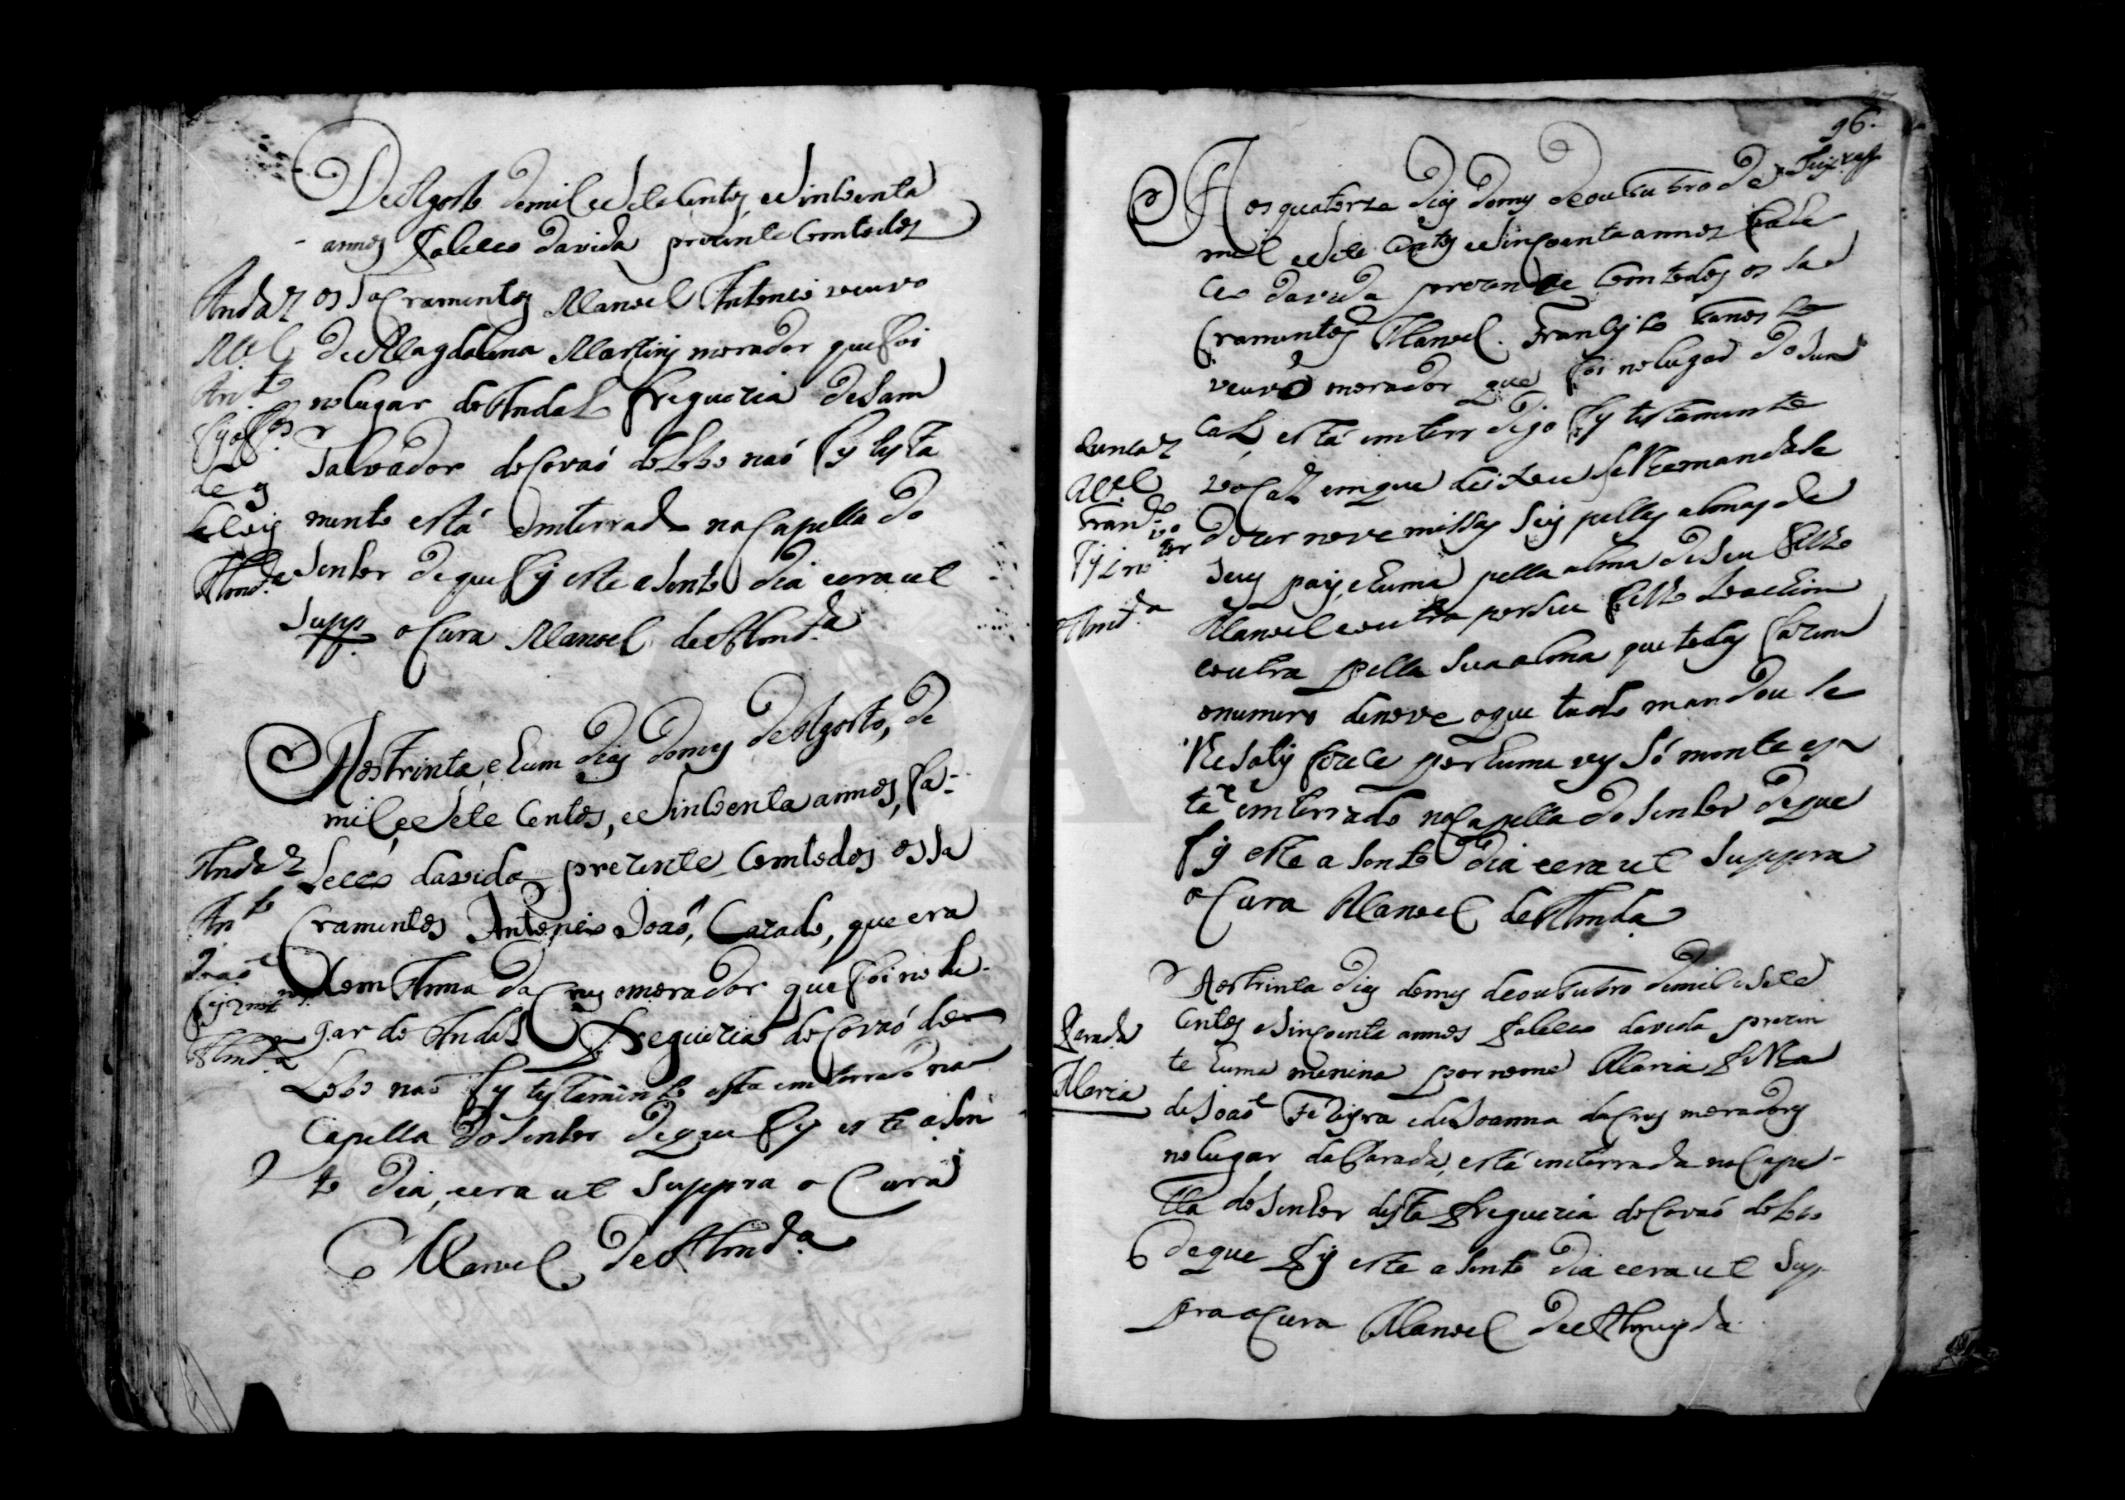 De Agosto de mil e Sete Centos, e Sincoenta
annos faleceo davida prezente Com todos
os Sacramentos Manoel Antonio veuvo
de Magdalena Martins morador que foi
no lugar do Andal freguezia de Sam
Salvador do Covaó do Lobo naó fes testa
mento está emterrado na Capella do
Senhor de que fis este a Sento dia e era ut
Supp. o Cura Manoel de Almd.a
Andal
M.el
Ant.o
Alm.da
Aos trinta, e hum dias do mes de Agosto, de
mil, e Sete Centos, e Sincoenta annos, fa-
leceo davida prezente Com todos os Sa
Cramentos Antonio Joaó, Cazado, que era
Com Anna da Crus morador que foi no lu-
gar do Andal freguezia do Covaó do
Lobo naó fes testamento está emterrado na
Capella do Senhor de que fis este a Sen
to dia, e era ut Suppra o Cura
Manoel de Almd.a
Andal
Ant.o
Joaó
Alm.da
96.
Aos quatorze dias do mes de outubro de
mil e Sete Centos e Sincoenta annos fale
ceo davida prezente Com todos os Sa
Cramentos Manoel Francisco
veuvo morador que foi no lugar do Jun
Cal, está emterr digo fes testamento
vocal em que deixou Se lhe mandase
dizer nove missas Seis pellas almas de
Seus pais, e huma pella alma de Seu filho
Manoel e outra por Seu filho Joachim
e outra pella Sua alma que todas fazem
o numero de nove o que tudo mandou Se
lhe Satisfizece por huma ves Só mente es
tá emterrado na Capella do Senhor de que
fis este a Sento dia e era ut Suppra
o Cura Manoel de Almda
Juncal
M.el
Fran.co
Alm.da
Aos trinta dias do mes de outubro de mil e Sete
Centos e Sincoenta annos faleceo davida prezen
te huma menina por nome Maria filha
de Joaó e de Joanna da Crus moradores
no lugar da Parada, está emterrada na Cape-
lla do Senhor desta freguezia do Covaó do Lobo
de que fis este a Sento dia e era ut Sup-
pra o Cura Manoel de Almeyda
Parada
Maria